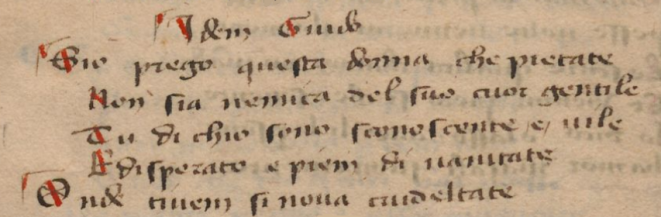 Idem Guido
S io prego questa donna che pietate
Non sia nemica del suo cuor gentile
Tu di chio sono sconoscente e, uile
E disperato e pien di uanitate
Onde tiuem si noua crudeltate